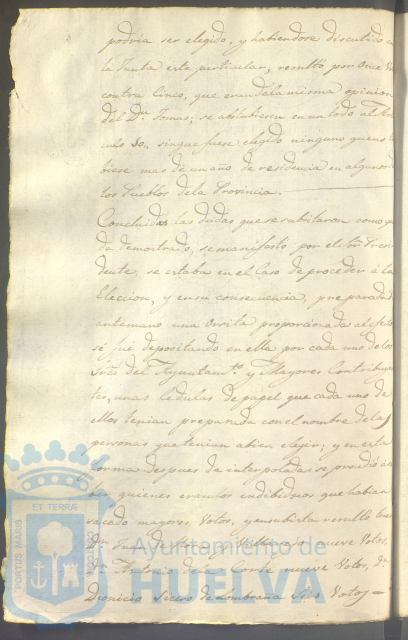 podria ser elegido, y habiendose discutido en
la Junta este particular, resultó por once
contra Cinco, que eran dela misma opinion
del Dn. Tomas; se abstubiesen en un todo al
culo 30, sin que fuese elegido ninguno que no
biese mas de un año de residencia en alguno de
los Pueblos dela Provincia.
Concluidas las dudas que se subsitaron como
da demostrado, se manifestó por el Sr. Presi-
dente, se estaba en el Caso de proceder á la
Eleccion, y en su consecuencia, preparada
antemano una Orsita proporcionada al efecto
se fué depositando en ella por cada uno de los
Sres. del Ayuntamto. y Mayores Contribuyen
tes, unas Cedulas de papel que cada uno de
ellos tenian preparada con el nombre delas
personas que tenian a bien elejir; y en esta
forma despues de interpoladas se procedió á
ber quienes eran los indibiduos que habian
sacado mayores Votos, y en su birtud resultó
Dn. Juan de nueve Votos,
Dn. Antonio dela Corte nueve Votos, Dn.
Dionicio Sicero de Zombrana Seis Votos
ET TERRÆ
PORTUS MARIS
Ayuntamiento de
HUELVA